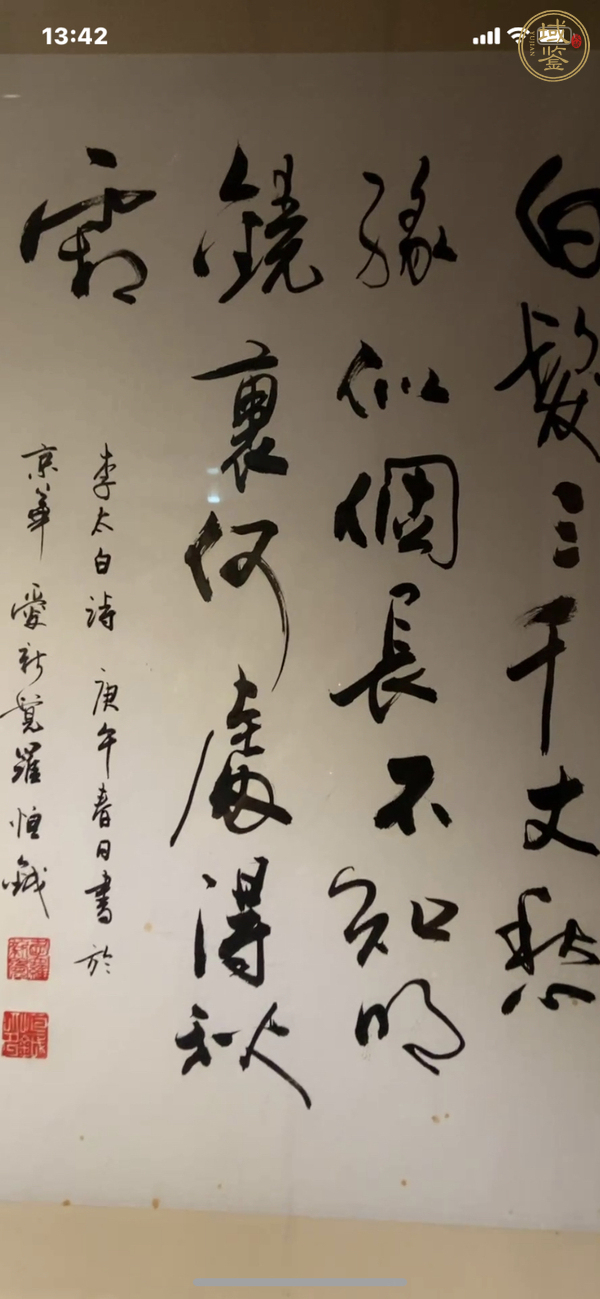 13:42
域鉴
YUJIAN
白髮三千丈愁
緣似個長不知明
鏡裏何處得秋
霜
李太白詩 庚午春日書於
京華 愛新覺羅恒鋮